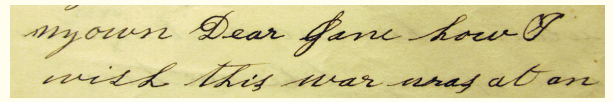 my own Dear Jane how I
wish this war was at an